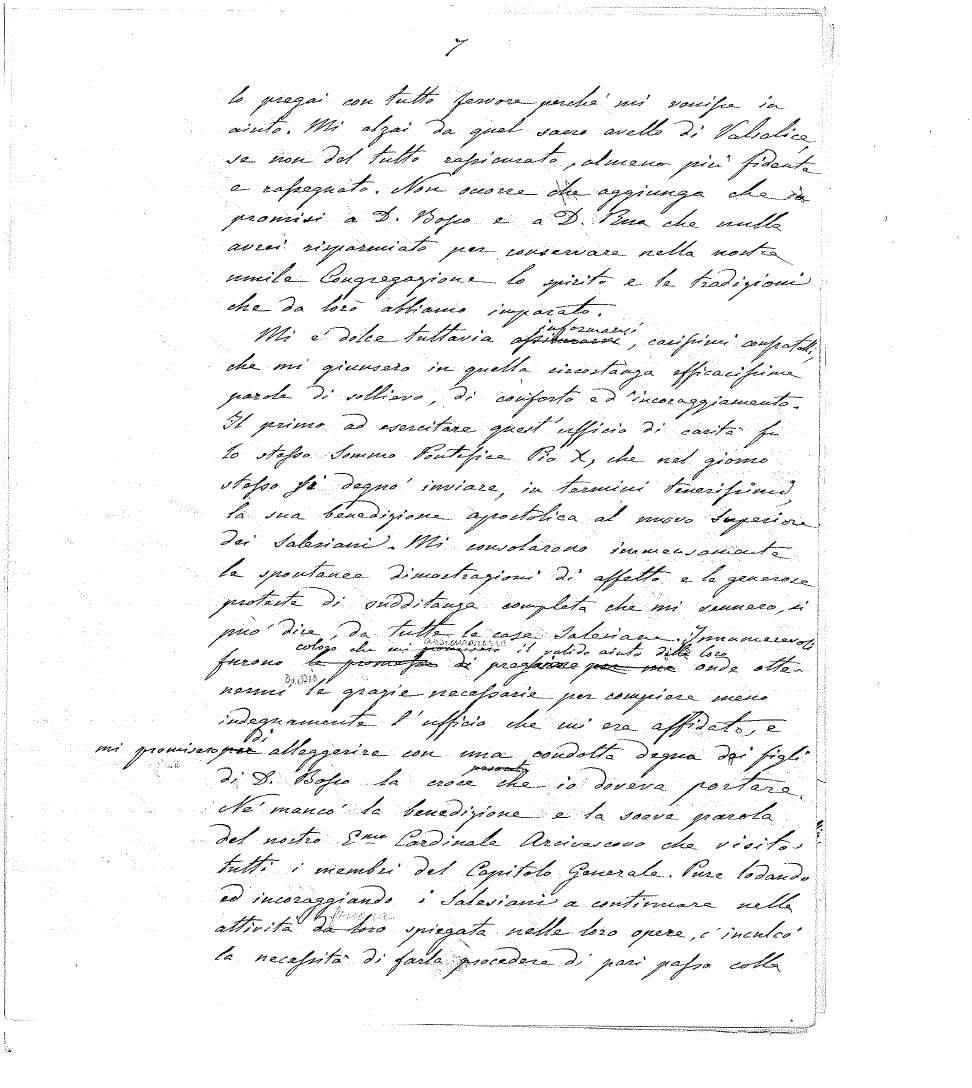 7
lo pregai con tutto fervore perchè mi venisse in
aiuto. Mi alzai da quel sacro avello di Valsalice,
se non del tutto rassicurato, almeno più fidente
e rassegnato. Non occorre che aggiunga che io
promisi a D. Bosco e a D. Rua che nulla
avrei risparmiato per conservare nella nostra
umile Congregazione lo spirito e le tradizioni
che da loro abbiamo imparato.
informarvi
Mi è dolce tuttavia assicurarvi, carissimi confratelli,
che mi giunsero in quella circostanza efficacissime
parole di sollievo, di conforto ed incoraggiamento.
Il primo ad esercitare quest'ufficio di carità fu
lo stesso Sommo Pontefice Pio X, che nel giorno
stesso si degnò inviare, in termini tenerissimi
la sua benedizione apostolica al nuovo Superiore
dei Salesiani. Mi consolarono immensamente
le spontanee dimostrazioni di affetto e le generose
proteste di sudditanza completa che mi vennero, si
può dire, da tutte le case Salesiane. Innumerevoli
assicurarono
coloro che mi promisero il valido aiuto delle loro
furono le promesse di preghiere per me onde otte-
da Dio
nermi le grazie necessarie per compiere meno
indegnamente l'ufficio che mi era affidato, e
di
mi promisero per alleggerire con una condotta degna dei figli
pesante
di D. Bosco la croce che io doveva portare.
Nè mancò la benedizione e la soave parola
del nostro Emo Cardinale Arcivescovo che visitò
tutti i membri del Capitolo Generale. Pure lodando
ed incoraggiando i Salesiani a continuare nella
finora
attività da loro spiegata nelle loro opere, c'inculcò
la necessità di farla procedere di pari passo colla